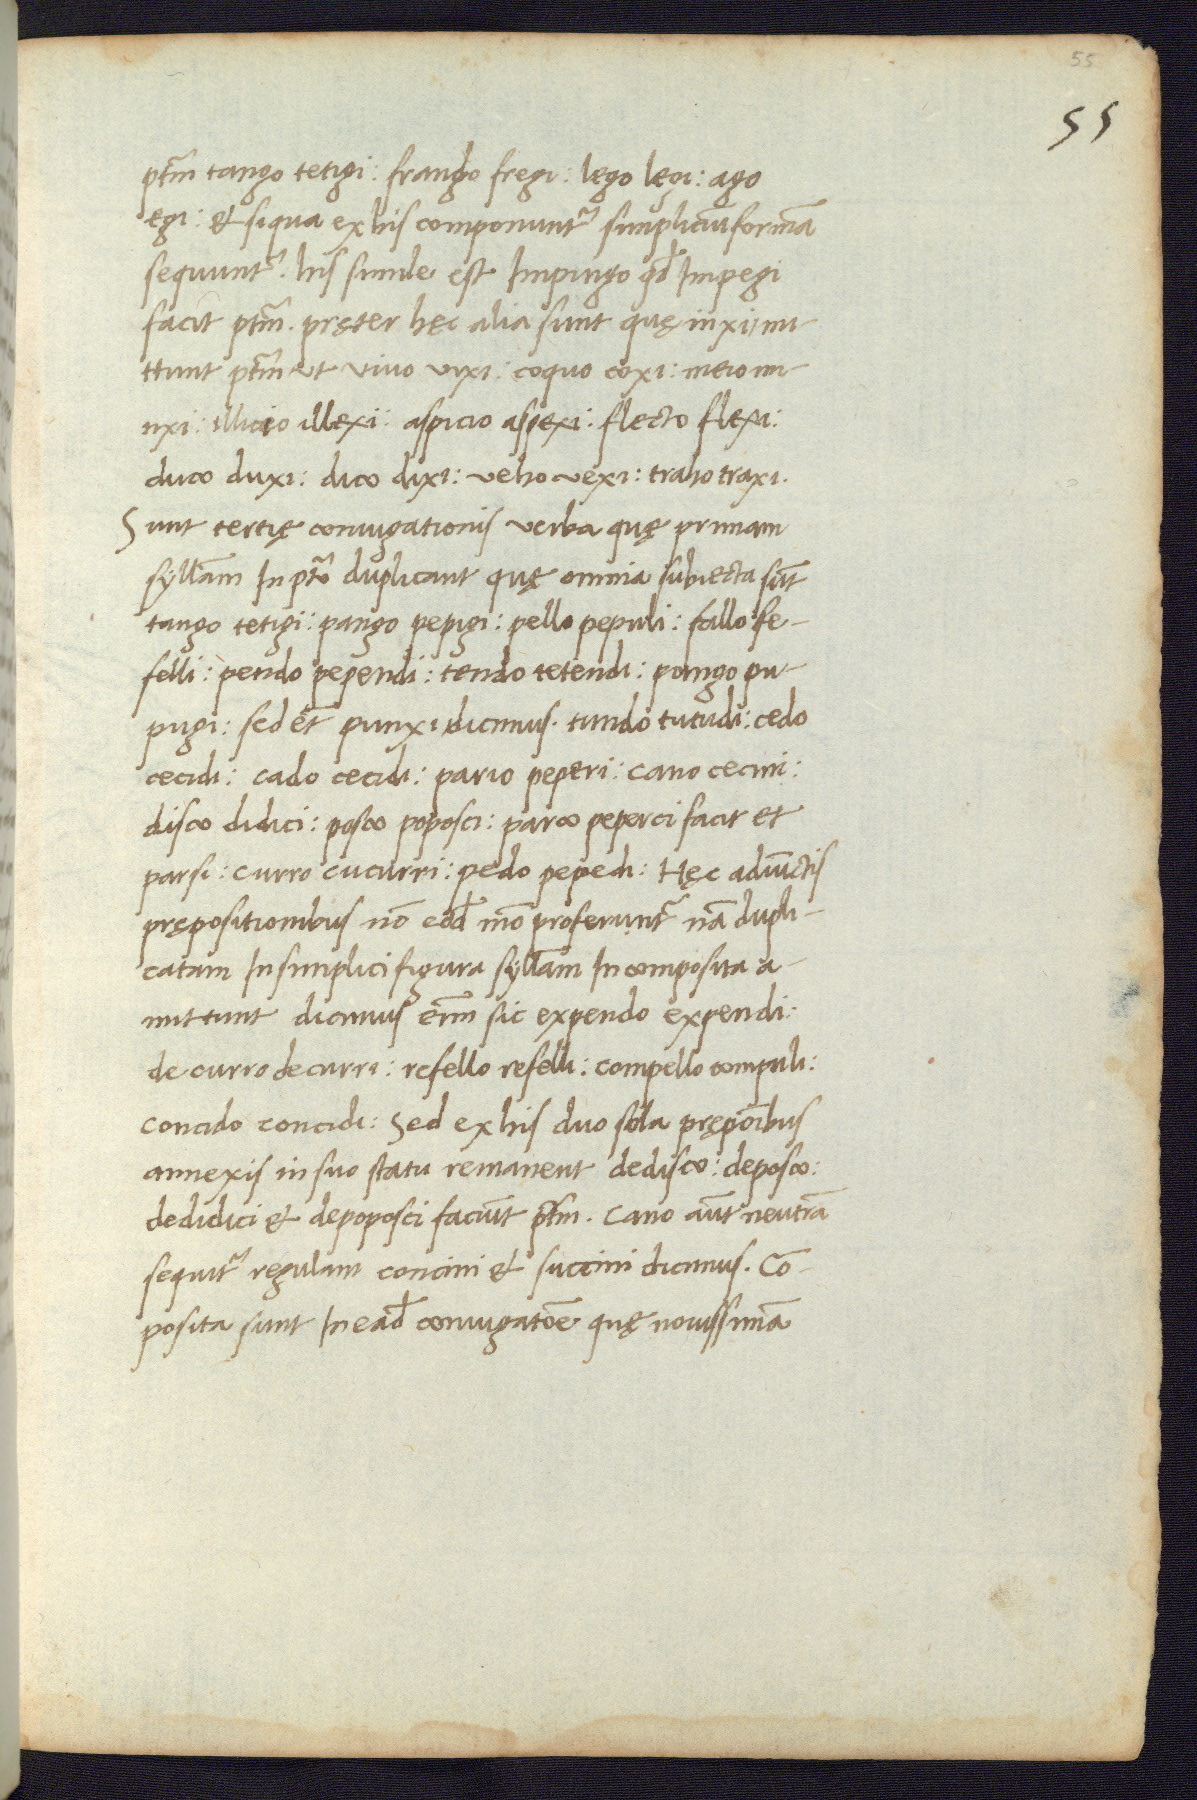 55
55
pt̄m tango tetigi: frango fregi: lego lęgi: ago
egi: & siqua ex his componunt᷑ simpliciū formā
sequunt᷑. his simile est Impingo qđ Impegi
facit pt̄m. pręter hęc alia sunt quę in xi mi-
ttunt pt̄m ut vivo vixi: coquo coxi: meio mi-
nxi: illicio illexi: aspicio aspexi: flecto flexi:
duco duxi: dico dixi: veho vexi: traho traxi.
Sunt tertię coniugationis verba quę primam
syllām In pt̄o duplicant quę omnia subiecta sūt
tango tetigi: pango pepigi: pello pepuli: fallo fe-
felli: pendo pependi: tendo tetendi: pongo pu-
pugi: sed ēt punxi dicimus. tundo tutudi: cedo
cecidi: cado cecidi: pario peperi: cano cecini:
disco didici: posco poposci: parco peperci facit et
parsi: curro cucurri: pedo pepedi: Hęc adiūctis
prępositionibus nō eođ mō proferunt᷑ nā dupli-
catam In simplici figura syllām In composita a-
mittunt dicimus eīm sic expendo expendi:
decurro decurri: refello refelli: compello compuli:
concido concidi: Sed ex his duo sola prępōibus
annexis in suo statu remanent dedisco: deposco:
dedidici & depoposci faciūt pt̄m. Cano aūt neutrā
sequit᷑ regulam concini & succini dicimus. Cō-
posita sunt In eađ coniugatōe quę novissimā